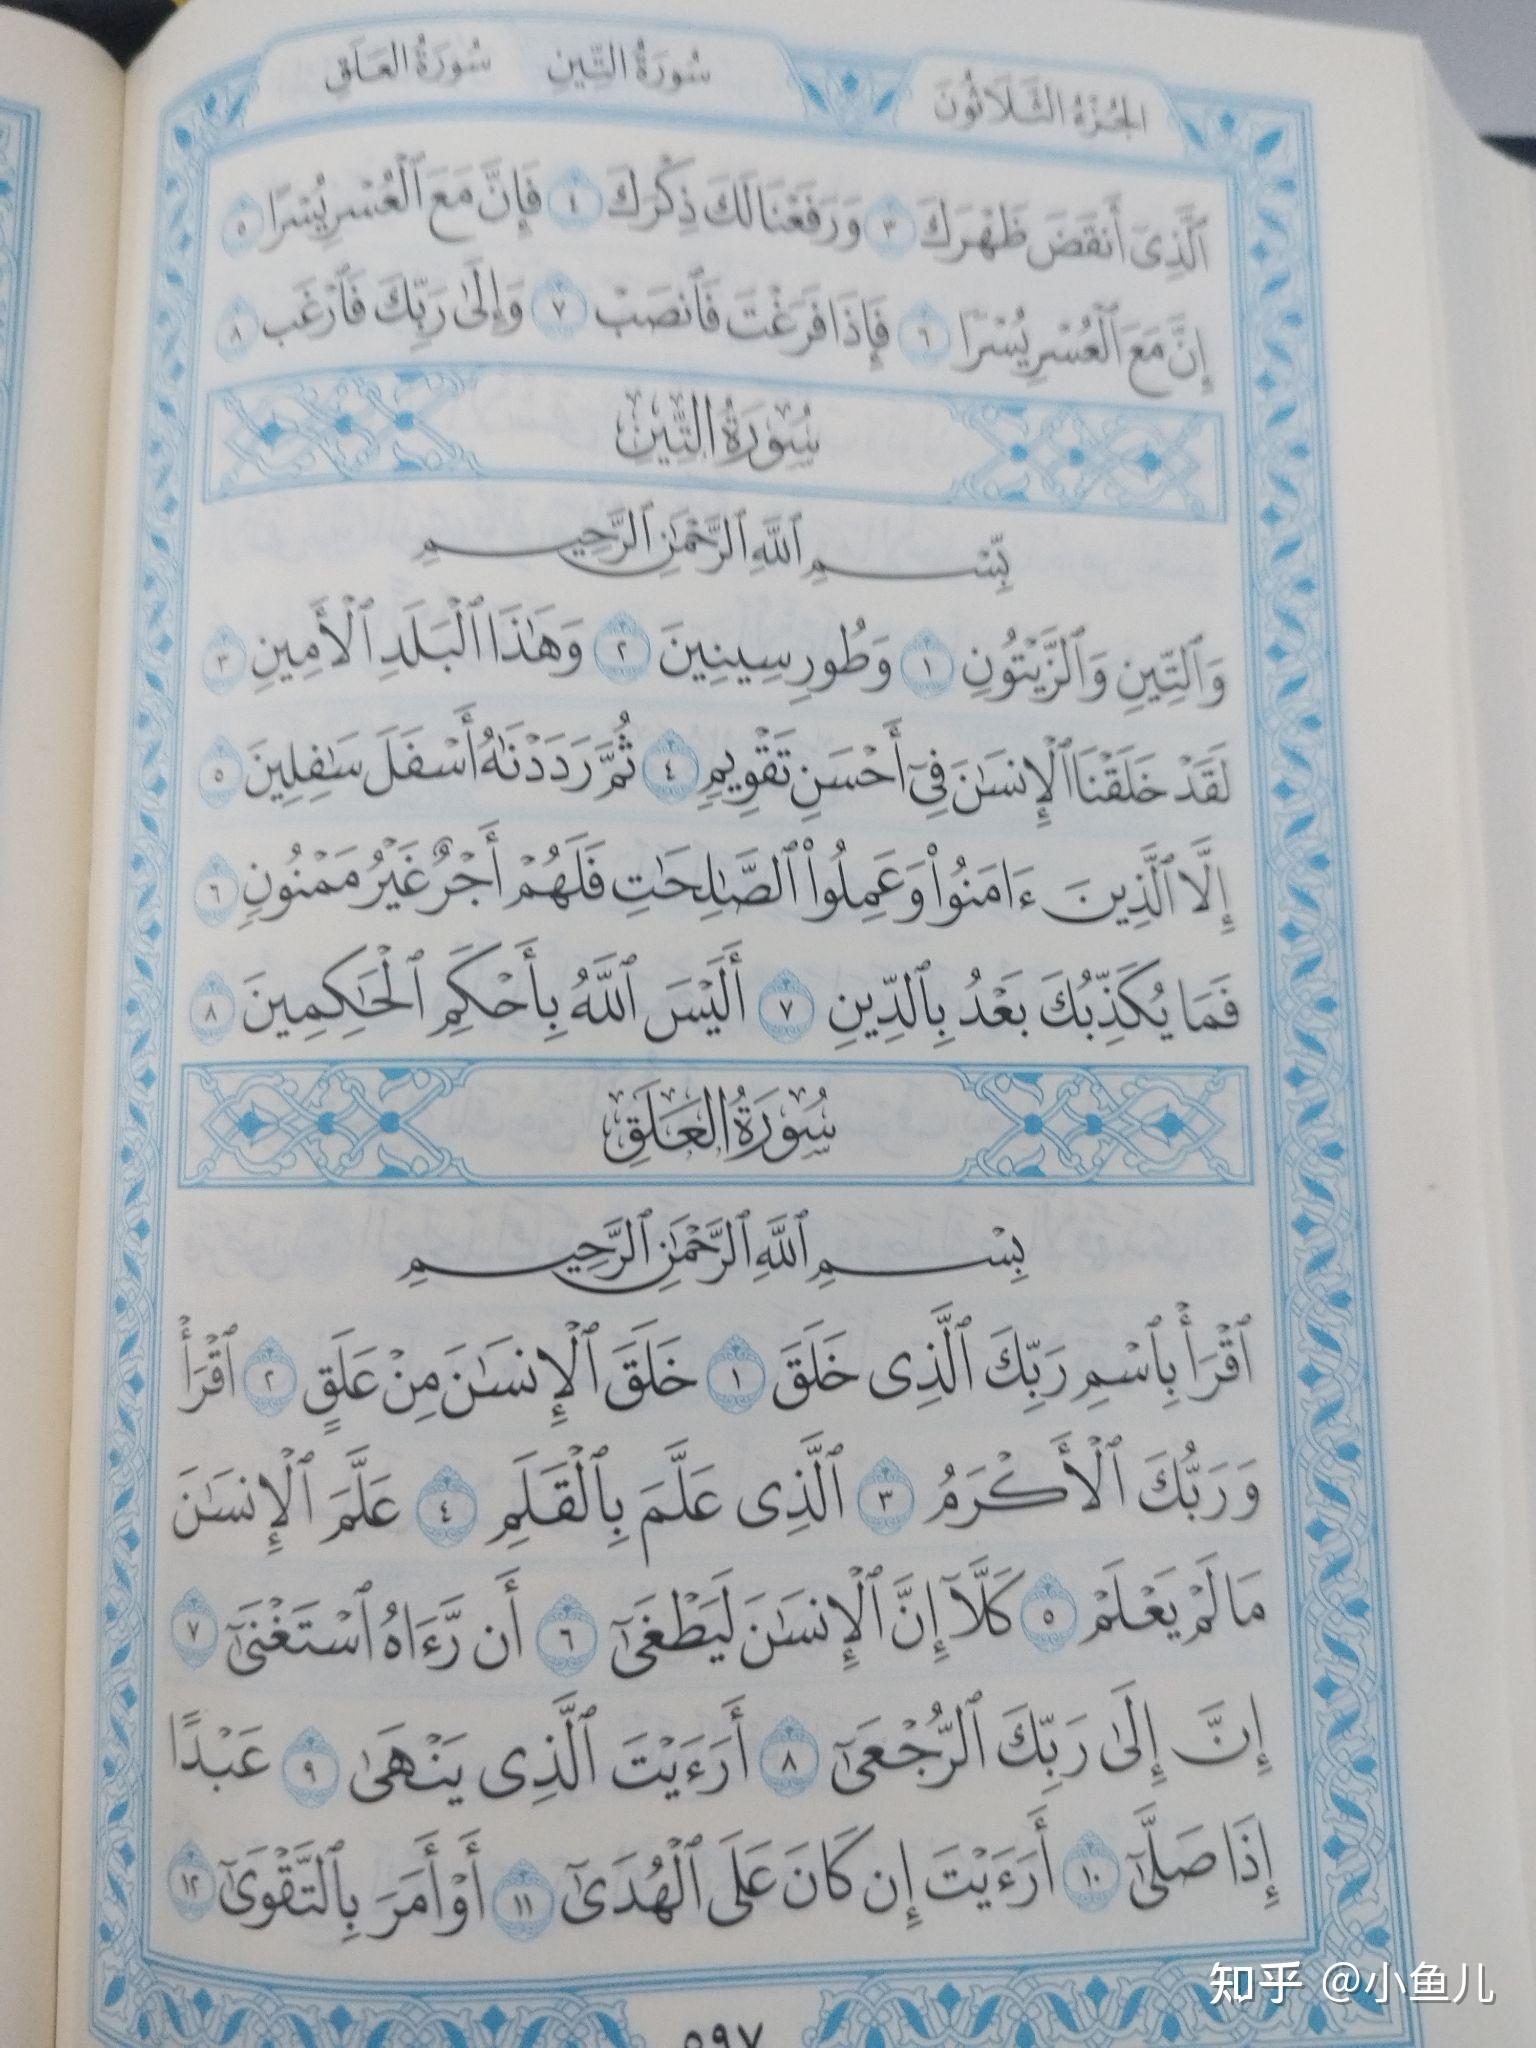 الجزء الثلاثون سورة التين سورة العلق
ٱلَّذِىٓ أَنقَضَ ظَهْرَكَ ٣ وَرَفَعْنَا لَكَ ذِكْرَكَ ٤ فَإِنَّ مَعَ ٱلْعُسْرِ يُسْرًا ٥
إِنَّ مَعَ ٱلْعُسْرِ يُسْرًا ٦ فَإِذَا فَرَغْتَ فَٱنصَبْ ٧ وَإِلَىٰ رَبِّكَ فَٱرْغَب ٨
سُورَةُ التِّينِ
بِّسْمِ ٱللَّهِ ٱلرَّحْمَٰنِ ٱلرَّحِيمِ
وَٱلتِّينِ وَٱلزَّيْتُونِ ١ وَطُورِ سِينِينَ ٢ وَهَٰذَا ٱلْبَلَدِ ٱلْأَمِينِ ٣
لَقَدْ خَلَقْنَا ٱلْإِنسَٰنَ فِىٓ أَحْسَنِ تَقْوِيمٍ ٤ ثُمَّ رَدَدْنَٰهُ أَسْفَلَ سَٰفِلِينَ ٥
إِلَّا ٱلَّذِينَ ءَامَنُوا۟ وَعَمِلُوا۟ ٱلصَّٰلِحَٰتِ فَلَهُمْ أَجْرٌ غَيْرُ مَمْنُونٍ ٦
فَمَا يُكَذِّبُكَ بَعْدُ بِٱلدِّينِ ٧ أَلَيْسَ ٱللَّهُ بِأَحْكَمِ ٱلْحَٰكِمِينَ ٨
سُورَةُ العَلَقِ
بِسْمِ ٱللَّهِ ٱلرَّحْمَٰنِ ٱلرَّحِيمِ
ٱقْرَأْ بِٱسْمِ رَبِّكَ ٱلَّذِى خَلَقَ ١ خَلَقَ ٱلْإِنسَٰنَ مِنْ عَلَقٍ ٢ ٱقْرَأْ
وَرَبُّكَ ٱلْأَكْرَمُ ٣ ٱلَّذِى عَلَّمَ بِٱلْقَلَمِ ٤ عَلَّمَ ٱلْإِنسَٰنَ
مَا لَمْ يَعْلَمْ ٥ كَلَّآ إِنَّ ٱلْإِنسَٰنَ لَيَطْغَىٰٓ ٦ أَن رَّءَاهُ ٱسْتَغْنَىٰٓ ٧
إِنَّ إِلَىٰ رَبِّكَ ٱلرُّجْعَىٰٓ ٨ أَرَءَيْتَ ٱلَّذِى يَنْهَىٰ ٩ عَبْدًا
إِذَا صَلَّىٰٓ ١٠ أَرَءَيْتَ إِن كَانَ عَلَى ٱلْهُدَىٰٓ ١١ أَوْ أَمَرَ بِٱلتَّقْوَىٰٓ ١٢
٥٩٧
知乎 @小鱼儿